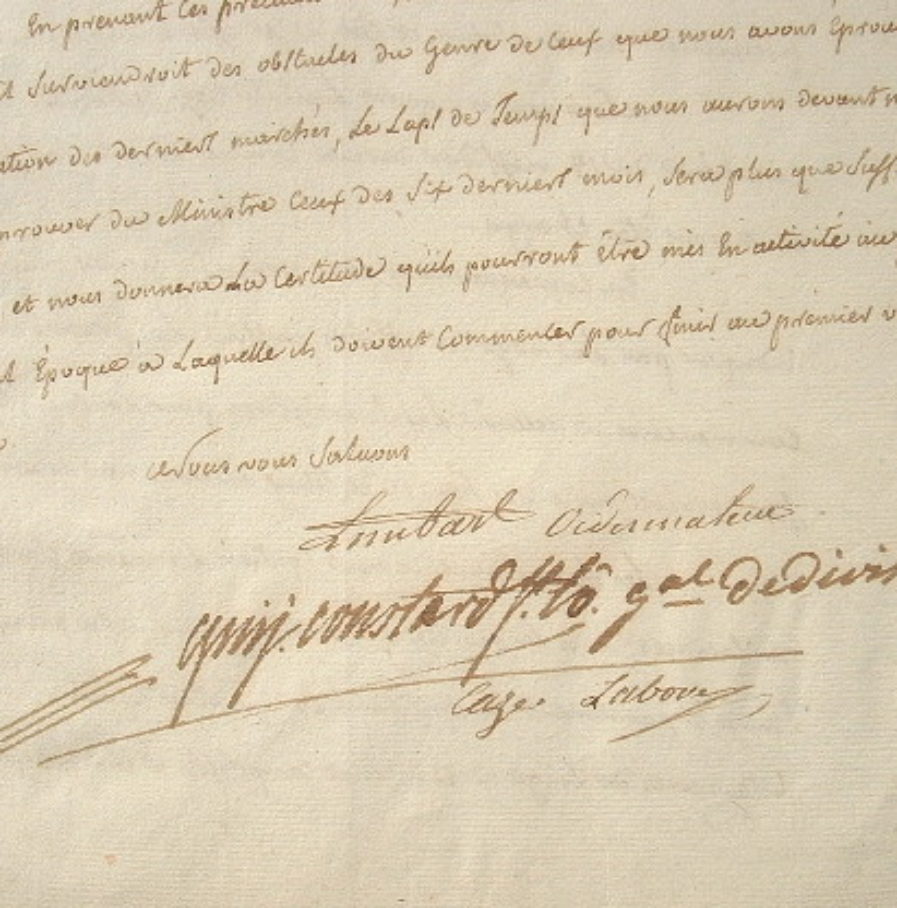 En prenant ces précau
il surviendroit des obstacles du Genre de Ceux que nous avons Éprou
ation des derniers marchés, Le Laps de Temps que nous aurons devant n
prouver du Ministre Ceux des Six derniers mois, sera plus que suff
et nous donnera La Certitude qu'ils pourront être mis En activité au
Époque à Laquelle ils doivent Commencer pour finir au prémier v
Nous vous saluons
Lombart Ordonnateur
constard gal de divis
Caze Labove